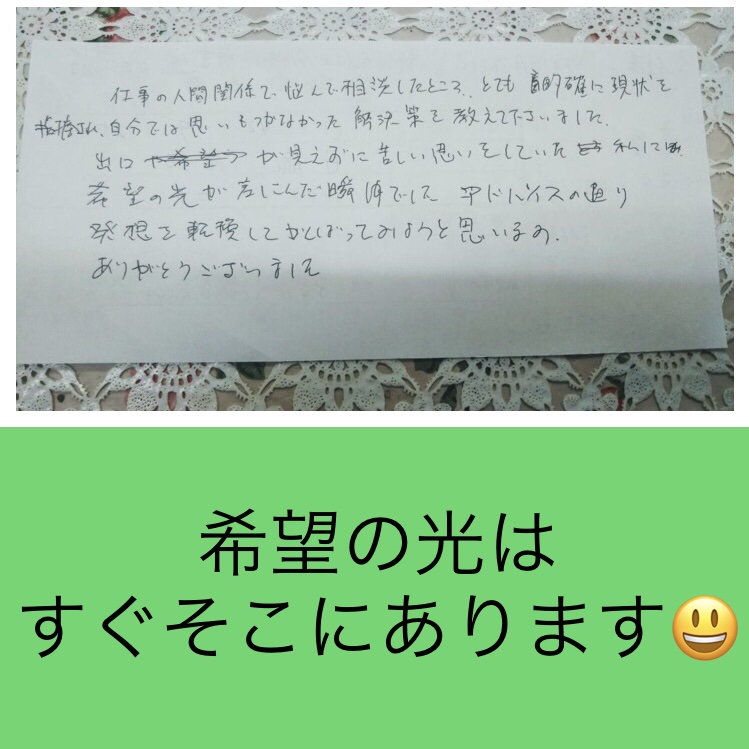 仕事の人間関係で悩んで相談したところ、とても 的確に現状を
指摘され、自分では思いもつかなかった解決策を教えて下さいました。
出口 が見えずに苦しい思いをしていた 私には
希望の光が差しこんだ瞬間でした アドバイスの通り
発想を転換してがんばってみようと思います。
ありがとうございました
希望の光は
すぐそこにあります😃